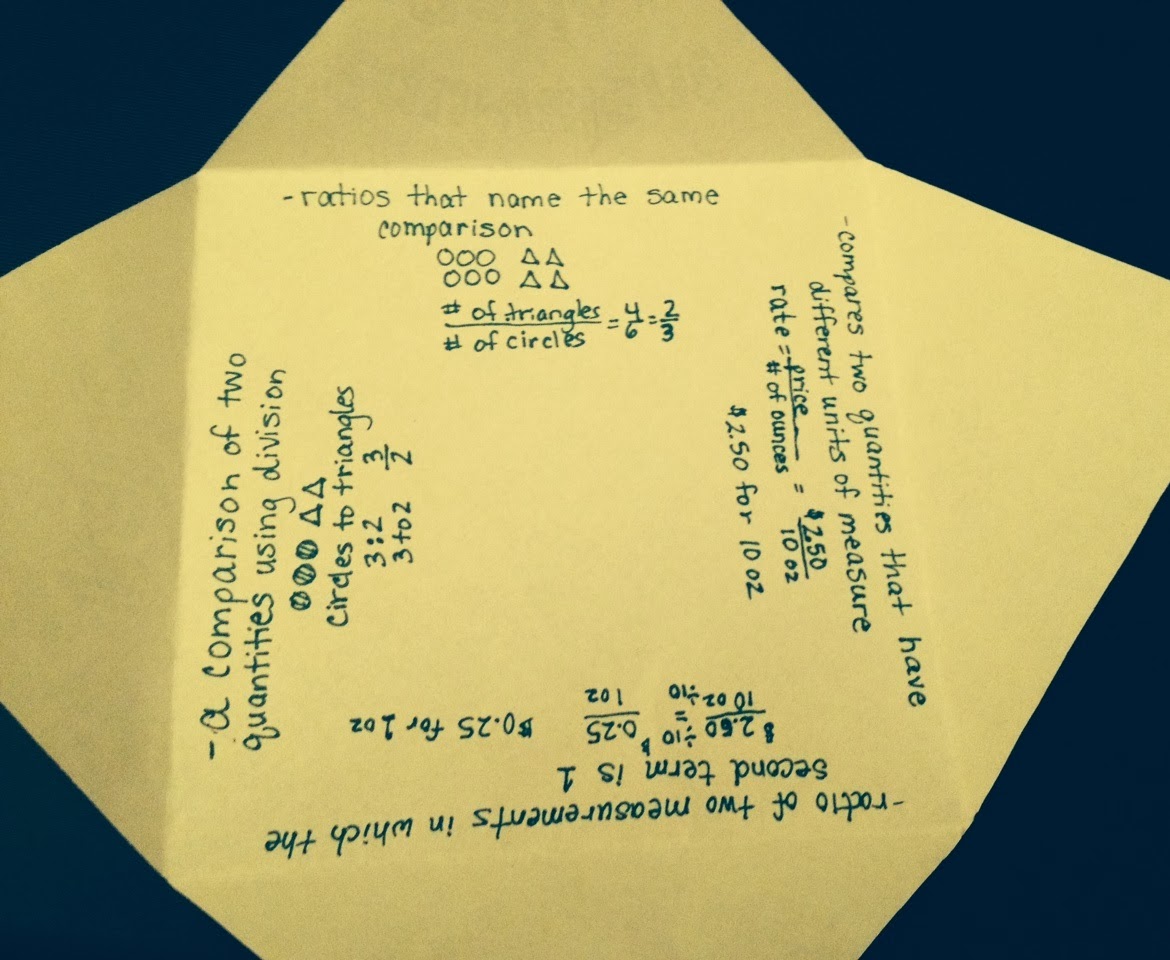 -ratios that name the same
comparison
OOO ΔΔ
OOO ΔΔ
# of triangles / # of circles = 4/6 = 2/3
-compares two quantities that have
different units of measure
rate = price / # of ounces = $2.50 / 10 oz
$2.50 for 10 oz
-ratio of two measurements in which the
second term is 1
$2.50 ÷10 / 10 oz ÷10 = $0.25 / 1 oz $0.25 for 1 oz
-a comparison of two
quantities using division
OOO ΔΔ
Circles to triangles
3:2 3/2
3 to 2